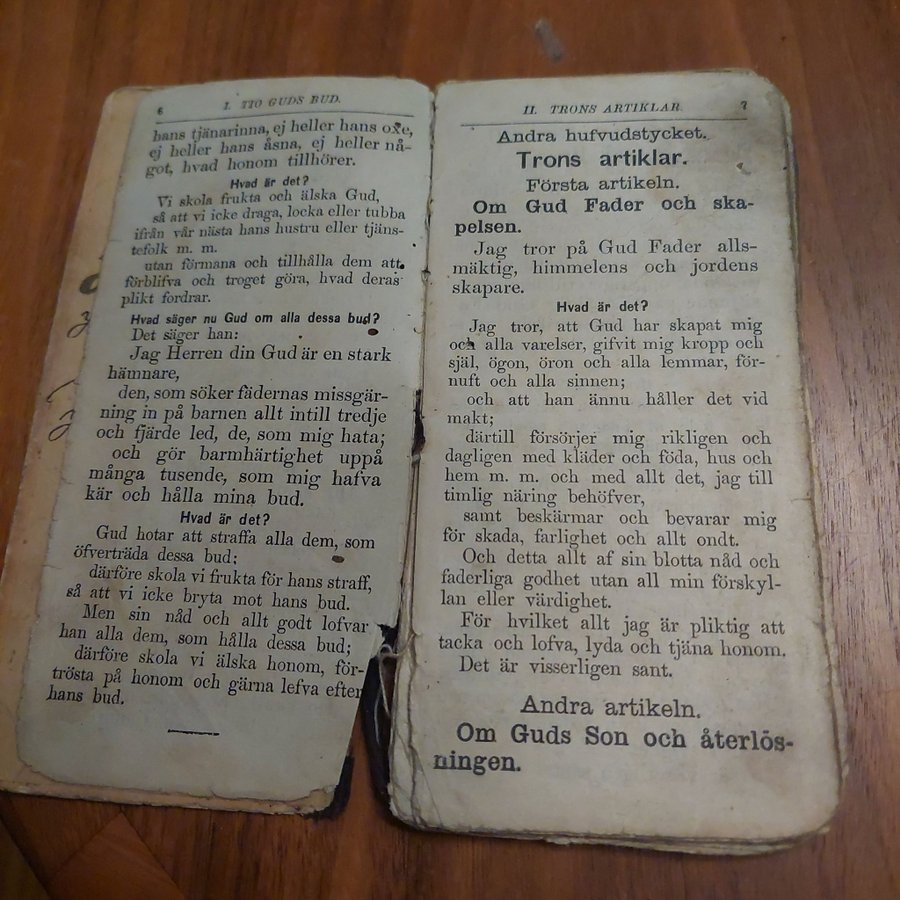 6
I. TIO GUDS BUD.
hans tjänarinna, ej heller hans oxe,
ej heller hans åsna, ej heller nå-
got, hvad honom tillhörer.
Hvad är det?
Vi skola frukta och älska Gud,
så att vi icke draga, locka eller tubba
ifrån vår nästa hans hustru eller tjäns-
tefolk m. m.
utan förmana och tillhålla dem att
förblifva och troget göra, hvad deras
plikt fordrar.
Hvad säger nu Gud om alla dessa bud?
Det säger han:
Jag Herren din Gud är en stark
hämnare,
den, som söker fädernas missgär-
ning in på barnen allt intill tredje
och fjärde led, de, som mig hata;
och gör barmhärtighet uppå
många tusende, som mig hafva
kär och hålla mina bud.
Hvad är det?
Gud hotar att straffa alla dem, som
öfverträda dessa bud;
därföre skola vi frukta för hans straff,
så att vi icke bryta mot hans bud.
Men sin nåd och allt godt lofvar
han alla dem, som hålla dessa bud;
därföre skola vi älska honom, för-
trösta på honom och gärna lefva efter
hans bud.
II. TRONS ARTIKLAR.
7
Andra hufvudstycket.
Trons artiklar.
Första artikeln.
Om Gud Fader och ska-
pelsen.
Jag tror på Gud Fader alls-
mäktig, himmelens och jordens
skapare.
Hvad är det?
Jag tror, att Gud har skapat mig
och alla varelser, gifvit mig kropp och
själ, ögon, öron och alla lemmar, för-
nuft och alla sinnen;
och att han ännu håller det vid
makt;
därtill försörjer mig rikligen och
dagligen med kläder och föda, hus och
hem m. m. och med allt det, jag till
timlig näring behöfver,
samt beskärmar och bevarar mig
för skada, farlighet och allt ondt.
Och detta allt af sin blotta nåd och
faderliga godhet utan all min förskyl-
lan eller värdighet.
För hvilket allt jag är pliktig att
tacka och lofva, lyda och tjäna honom.
Det är visserligen sant.
Andra artikeln.
Om Guds Son och återlös-
ningen.